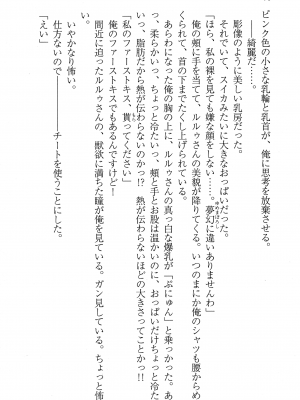 ピンク色の小さな乳輪と乳首が、俺に思考を放棄させる。
――綺麗だ……。
彫像のように美しい乳房だった。
それでいてスイカみたいに大きなおっぱいだった。
「ほら、私の裸を見ても嫌な顔をしない……。夢幻に違いありませんわ」
俺の頬に手を当てて、ルルゥさんの美貌が降りてくる。いつのまにか俺のシャツも腰からめ
くられて、首の下までたくし上げられている。
あらわになった俺の胸の上に、ルルゥさんの真っ白な爆乳が「ぷにゅん」と乗っかった。あ
っ、柔らかいっ。そしてちょっと冷たいっ。頬と手とお股は温かいのに、おっぱいだけちょっと冷た
い。脂肪だから熱が伝わらないのかっ!? 熱が伝わらないほどの大きさってことかっ!!
「私のファーストキス、貰ってください」
俺のファーストキスでもあるんですけど！
間近に迫ったルルゥさんの、獣欲に満ちた瞳が俺を見ている。ガン見している。ちょっと怖
い。
いややかなり怖い。
仕方ないので――――チートを使うことにした。
「えい」